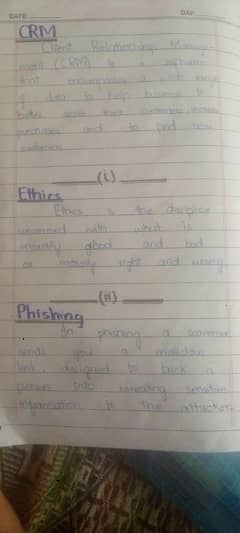 DATE DAY
CRM
Client Relationship Manag-
ment (CRM) is a software
that a wide range
of data to help business to
better serve their customers, increase
purchases and to find new
customers
(i)
Ethics
Ethics is the discipline
concerned with what is
morally good and bad
or morally right and wrong
(ii)
Phishing
In phishing a scammer
sends you a malicious
link, designed to trick a
person into revealing sensitive
information to the attacker.